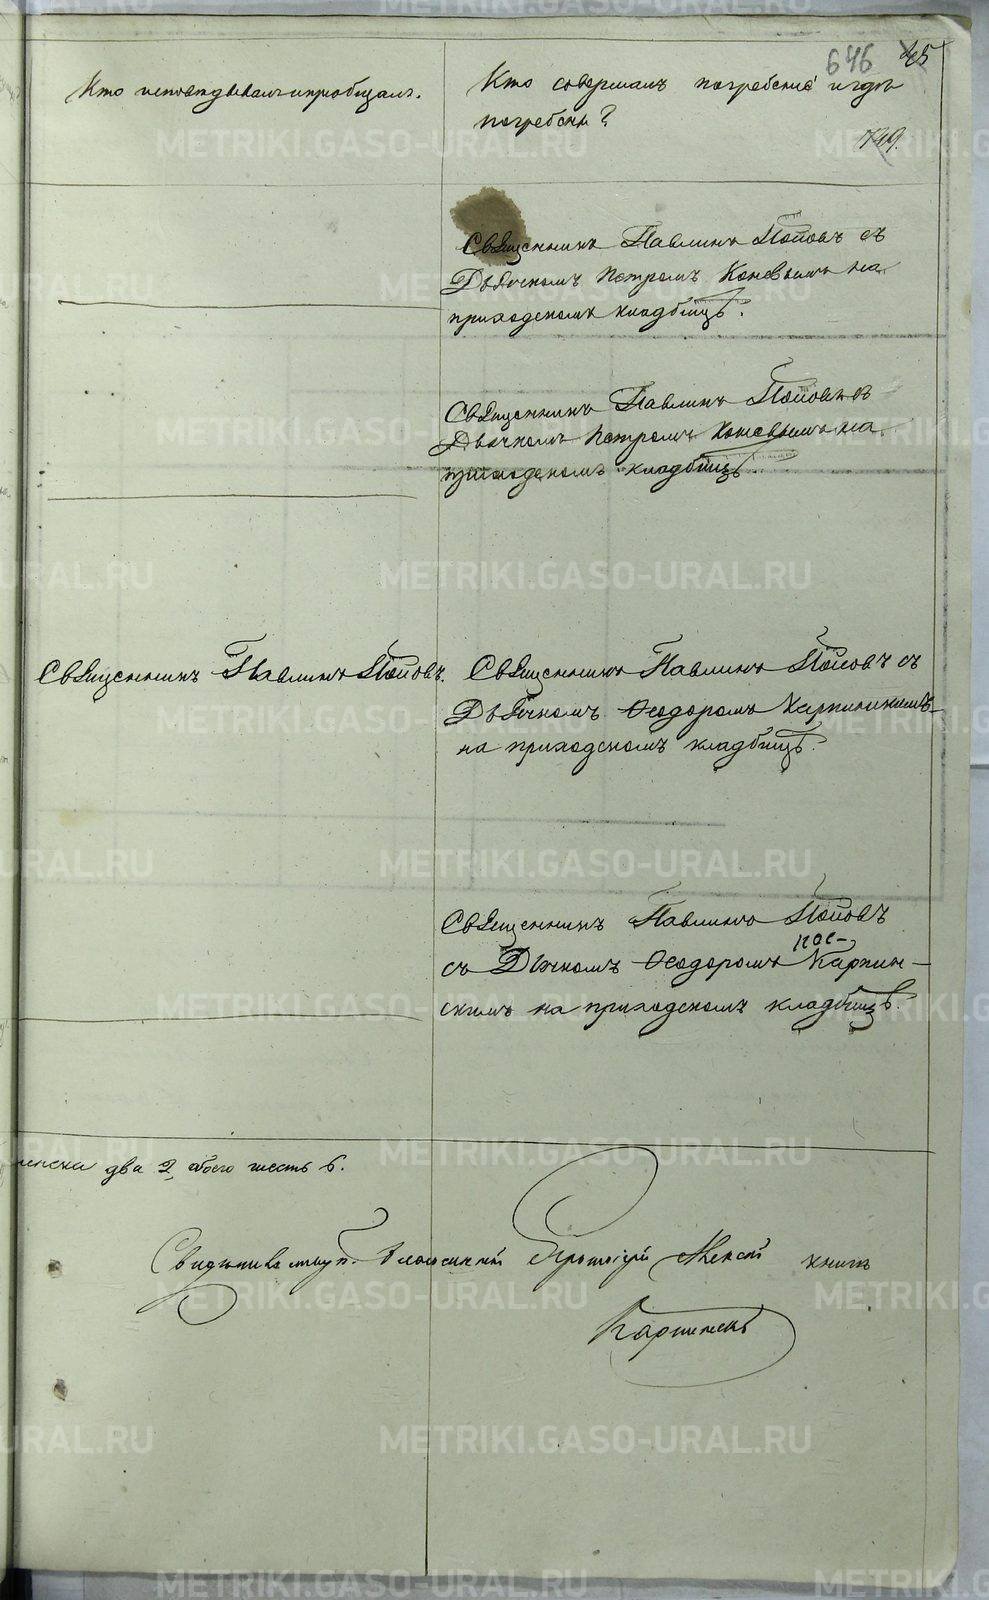 646 45
Кто исповѣдывалъ и приобщалъ.
Кто совершалъ погребеніе и гдѣ
погребены?
749.
Священникъ Павлинъ Поповъ съ
Дьячкомъ Петромъ Коневымъ на
приходскомъ кладбищѣ.
Священникъ Павлинъ Поповъ съ
Дьячкомъ Петромъ Коневымъ на
приходскомъ кладбищѣ.
Священникъ Павлинъ Поповъ.
Священникъ Павлинъ Поповъ съ
Дьячкомъ Ѳеодоромъ Карпинскимъ
на приходскомъ кладбищѣ.
Священникъ Павлинъ Поповъ
съ Дьячкомъ Ѳеодоромъ Карпин-
скимъ на приходскомъ кладбищѣ.
женска два 2, обоего шесть 6.
Благочинный Протоіерей
Карпинскій
METRIKI.GASO-URAL.RU